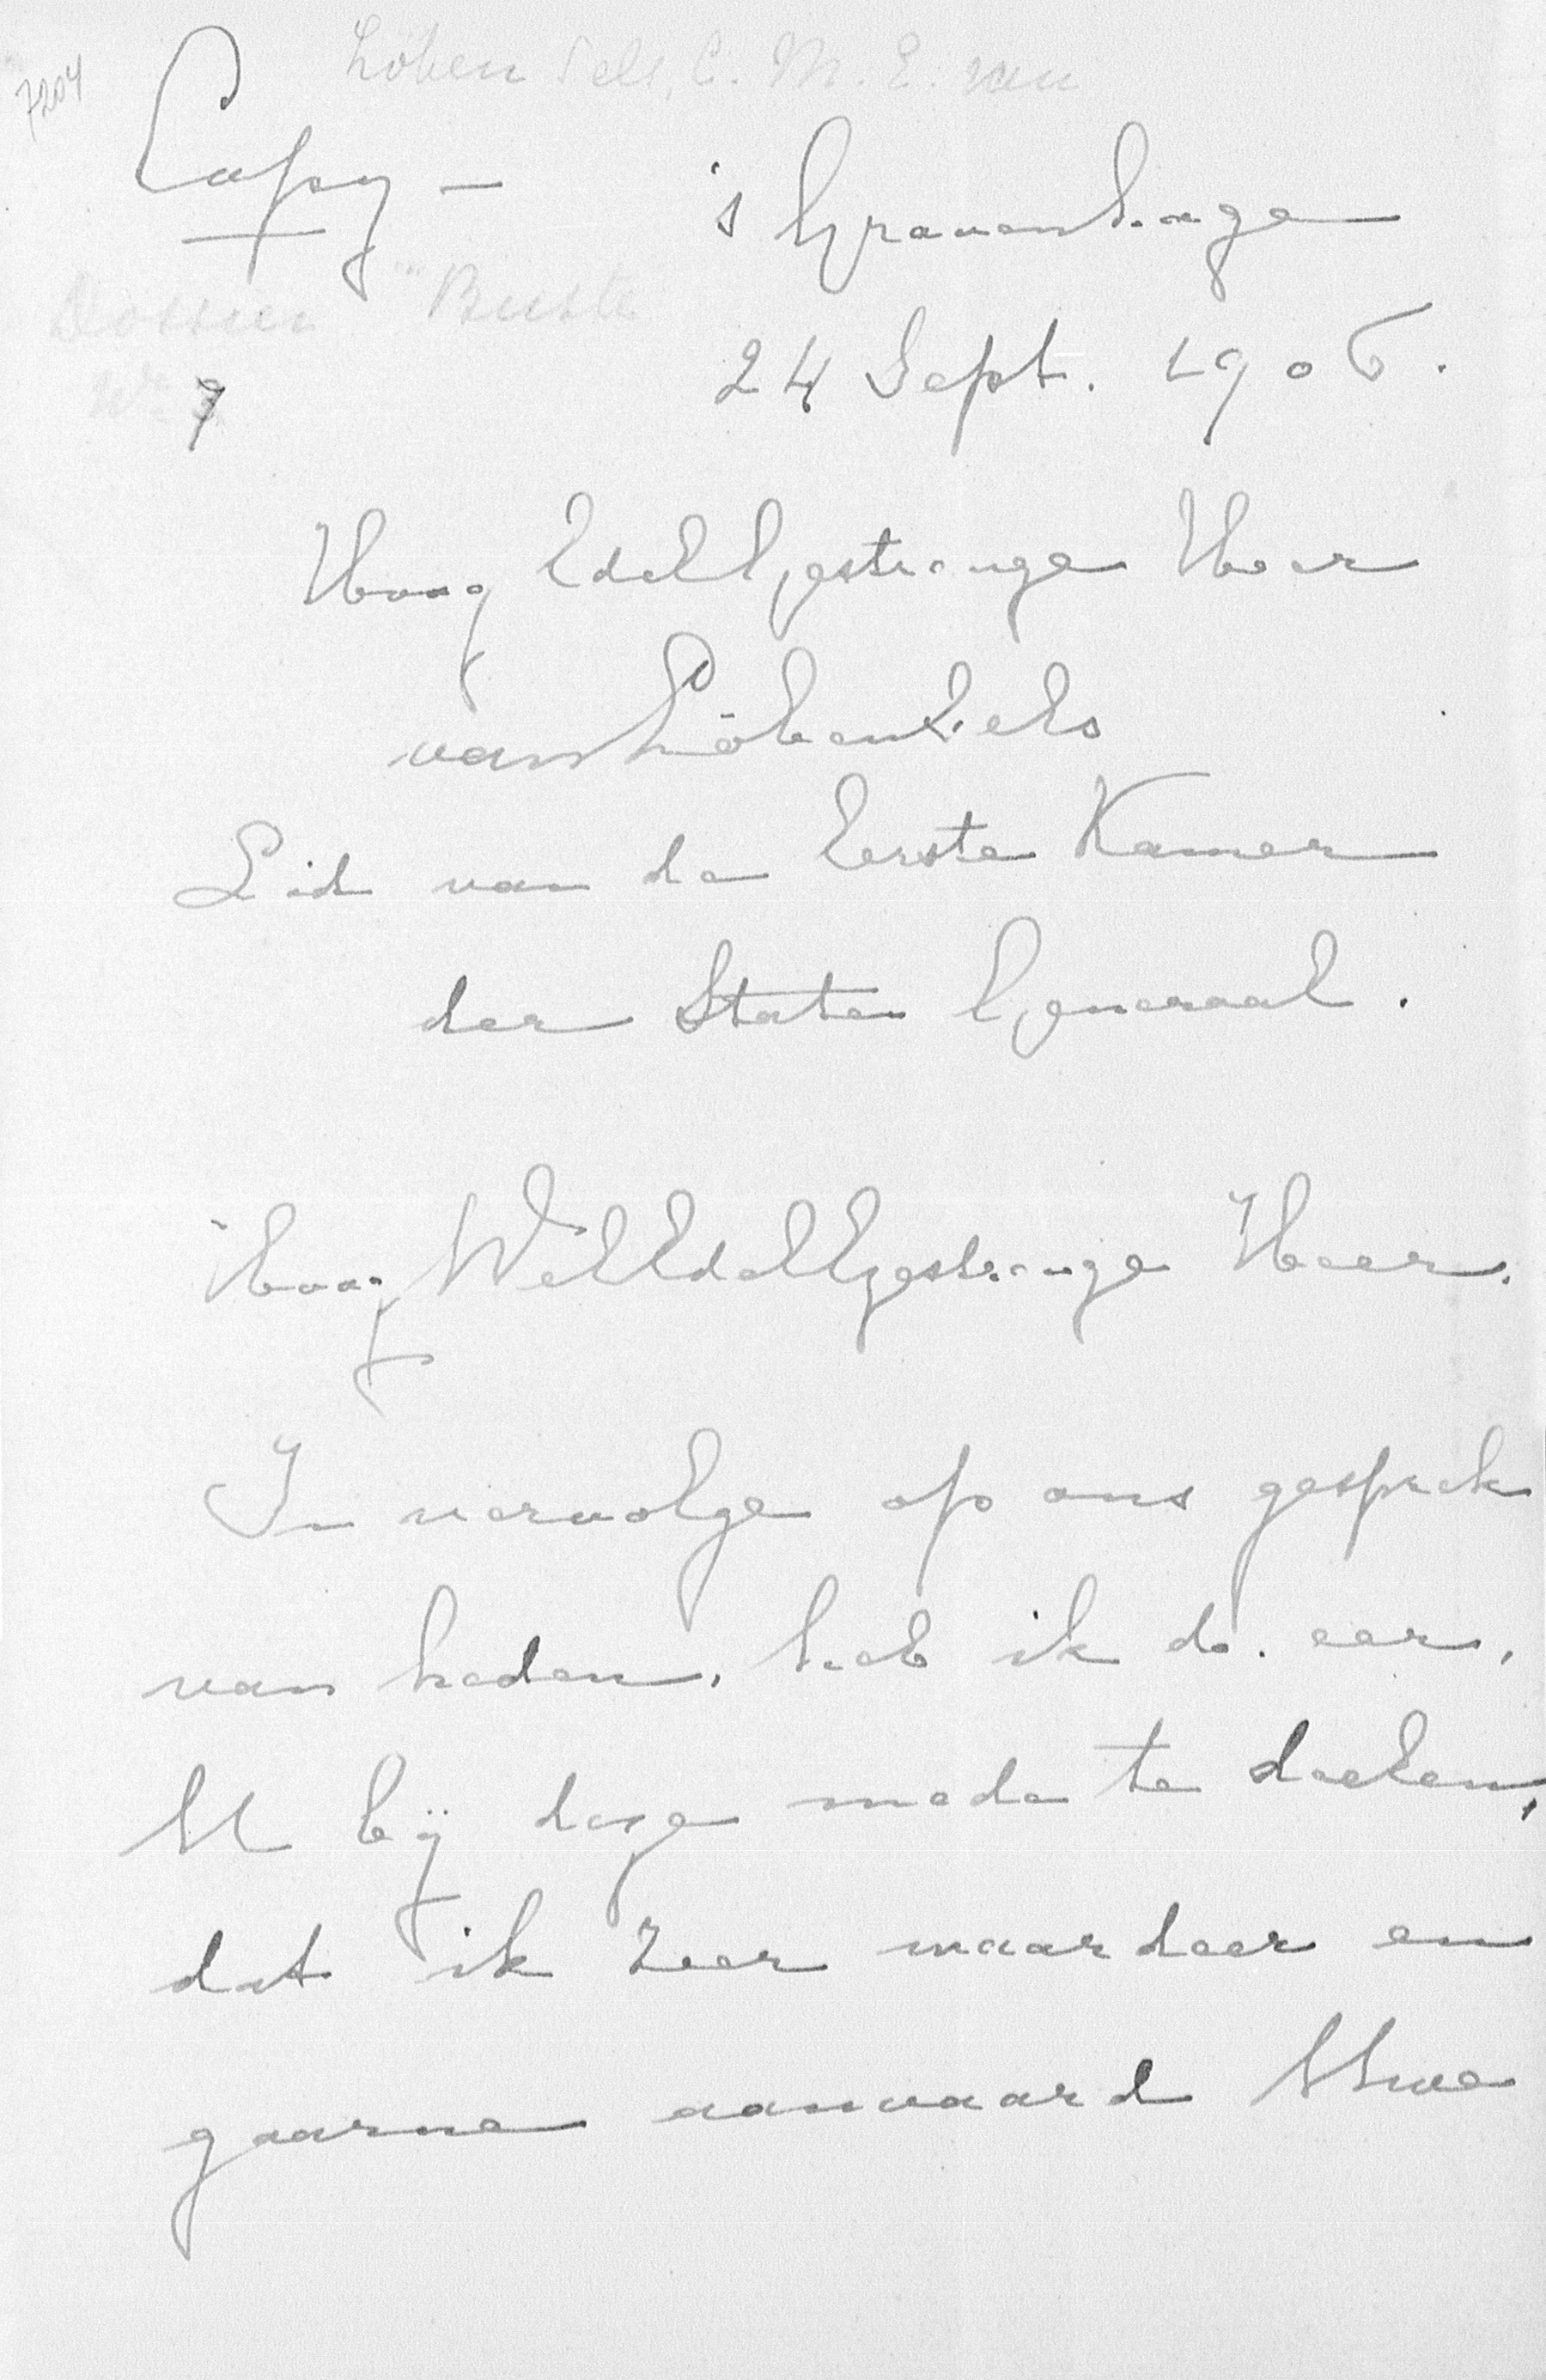 7204
Löben Sels, C. M. E. van
Copy –
's Gravenhage
Dossier "Buste
24 Sept. 1906.
No 7
Hoog Edel Gestrenge Heer
van Löben Sels
Lid van de Eerste Kamer
der Staten Generaal.
Hoog WelEdelGestrenge Heer.
In vervolge op ons gesprek
van heden, heb ik de eer,
U bij deze mede te deelen,
dat ik zeer waardeer en
gaarne aanvaard Uwe